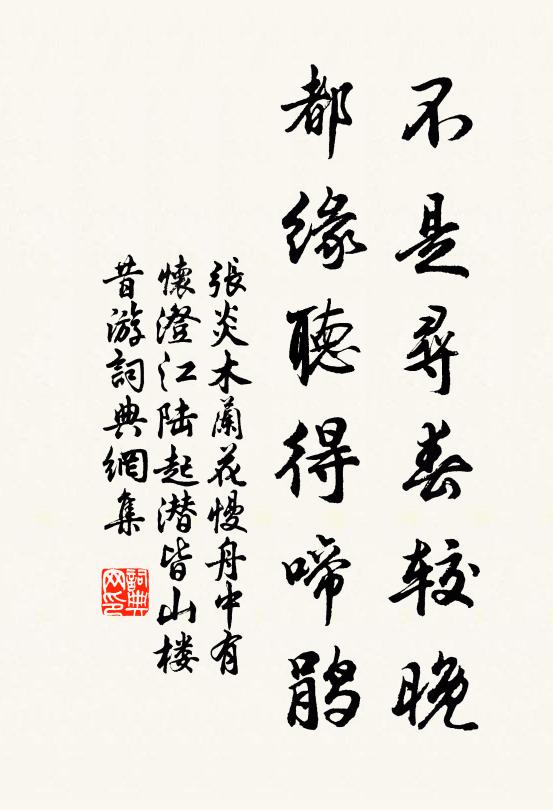 不是尋春较晚
都緣聽得啼鹃
張炎木蘭花慢舟中有
懷澄江陆起潜皆山楼
昔游詞典網集
詞典网印